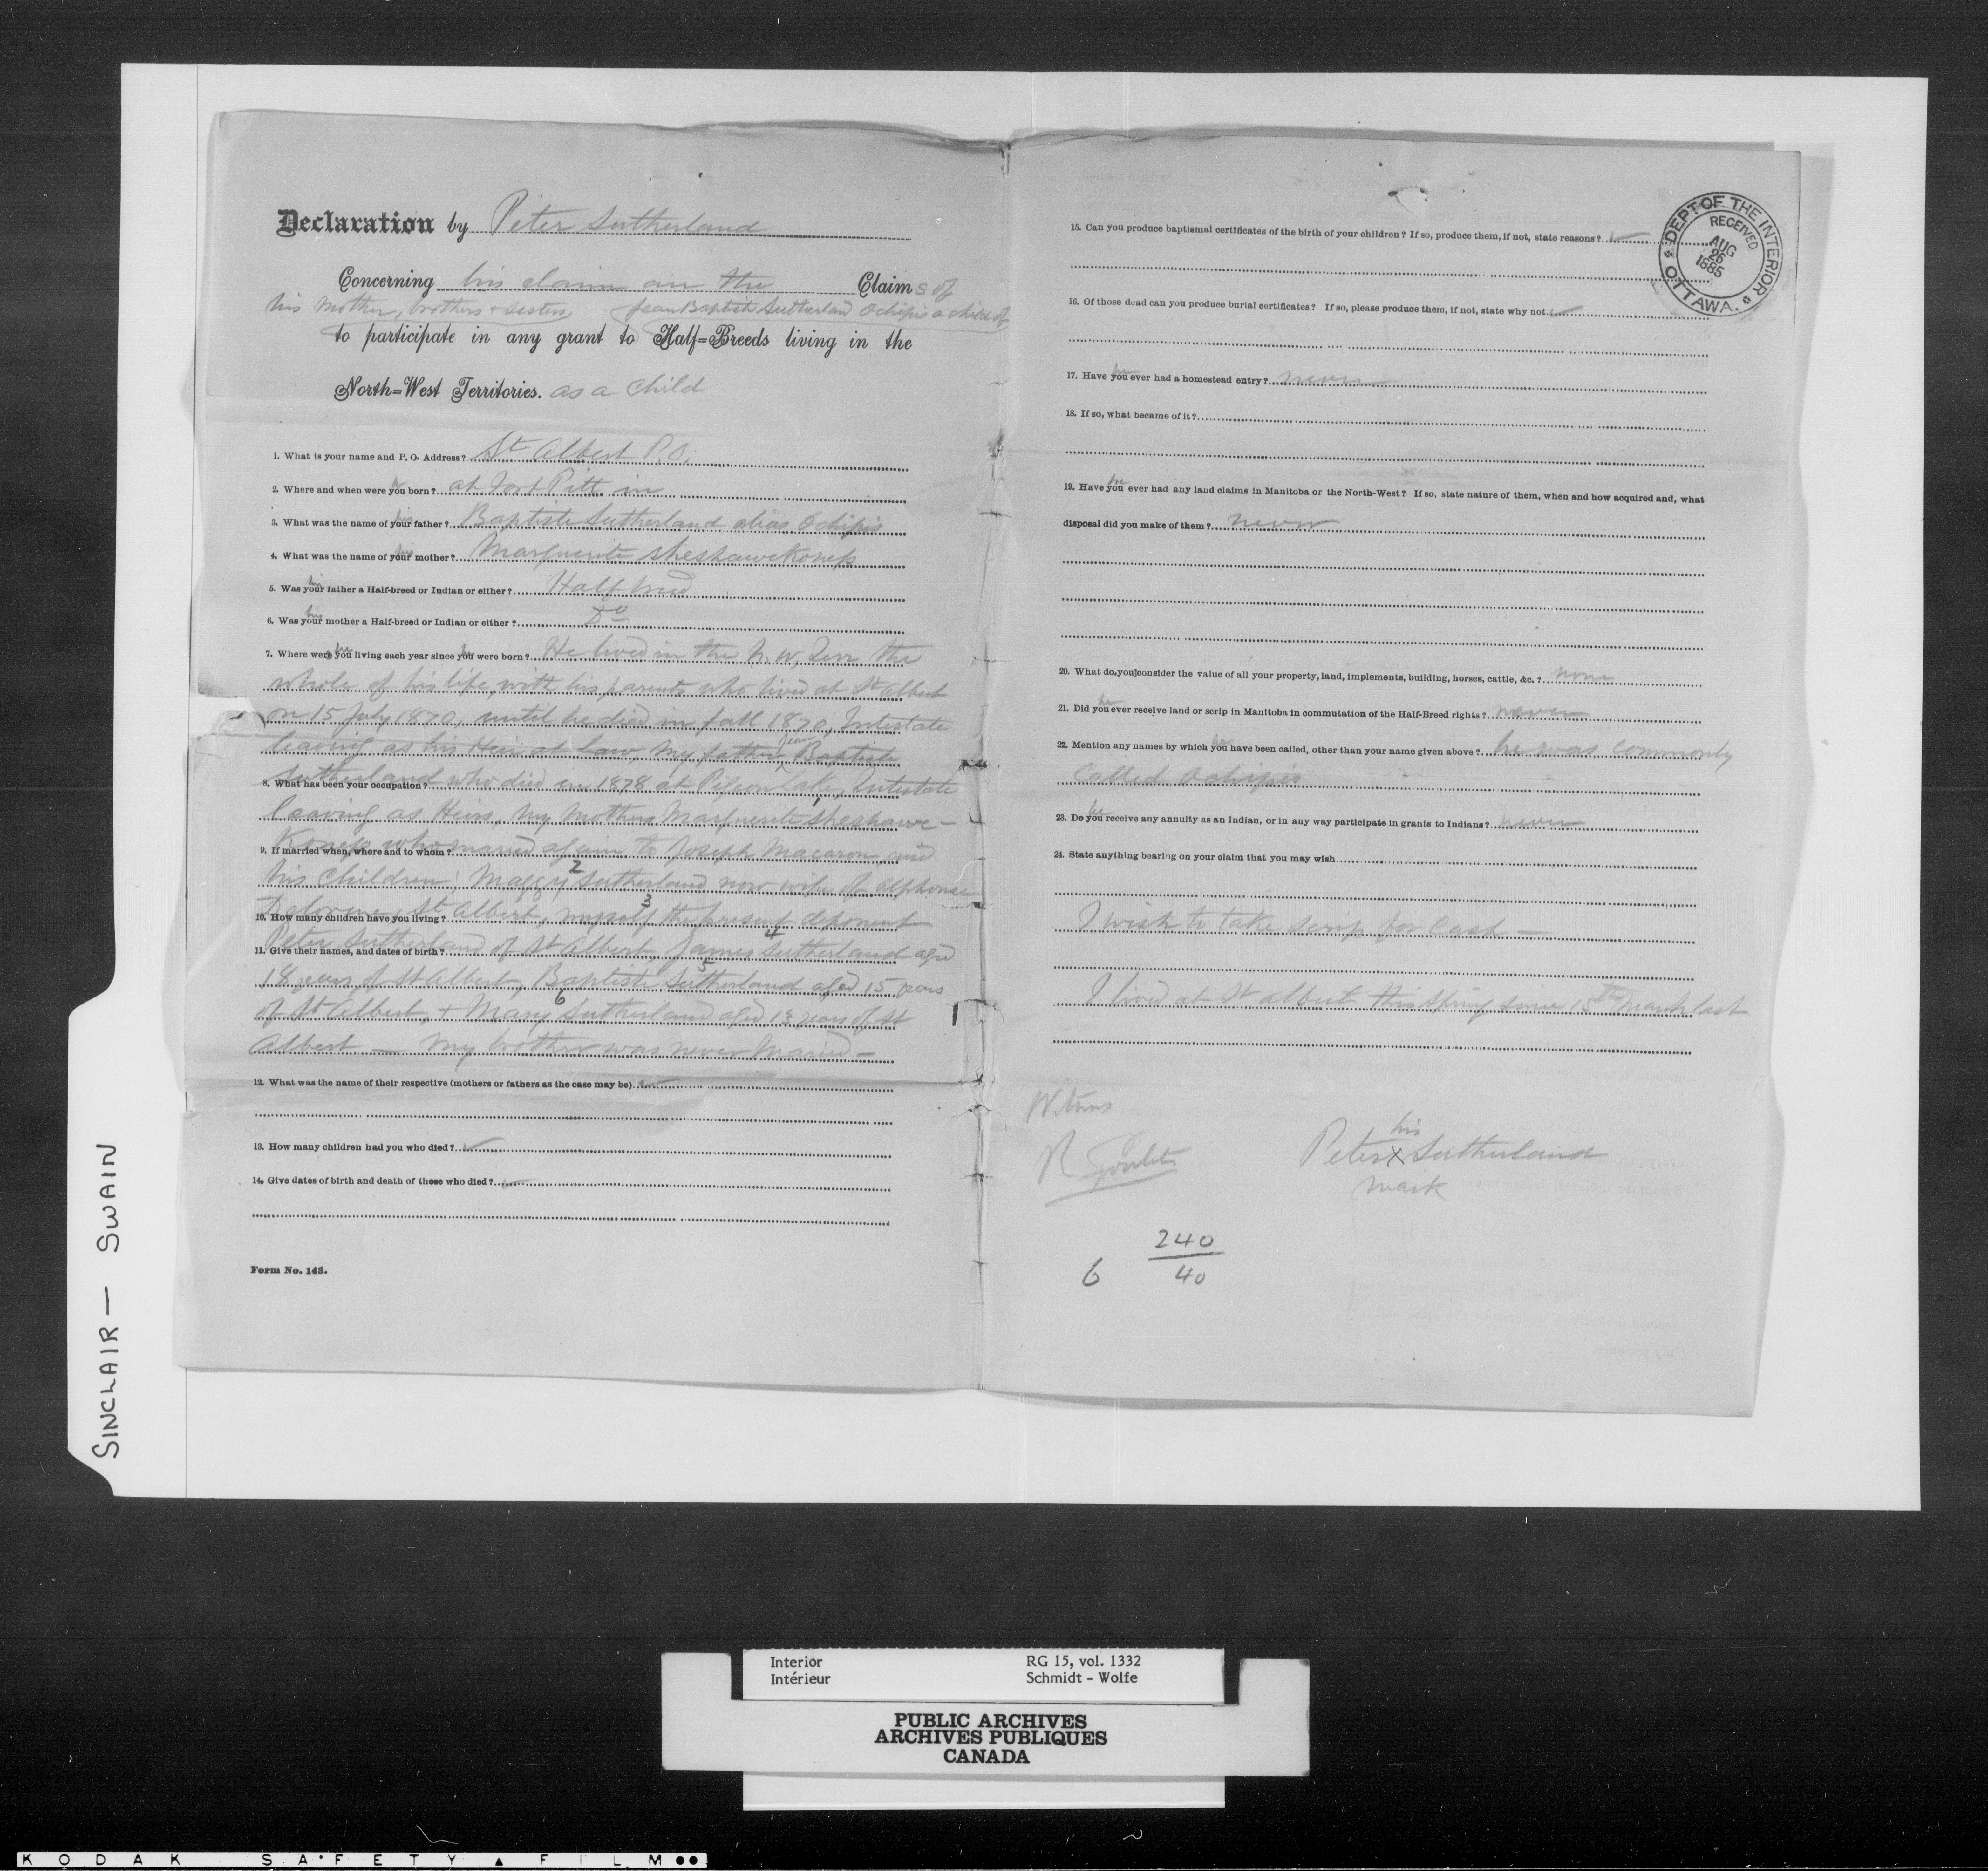 Declaration by Peter Sutherland
Concerning his claim an the Claims of
his Mother, brothers + sisters, Jean Baptiste Sutherland Ochipis a child of
to participate in any grant to Half=Breeds living in the
North=West Territories. as a child
1. What is your name and P. O. Address? St Albert P.O.
he
2. Where and when were you born? at Fort Pitt in
his
3. What was the name of your father? Baptiste Sutherland alias Ochipis
his
4. What was the name of your mother? Marguerite Sheshawekonep
his
5. Was your father a Half-breed or Indian or either? Halfbreed
his
6. Was your mother a Half-breed or Indian or either? Do
he he
7. Where were you living each year since you were born? He lived in the N. W. Terr the
whole of his life with his parents who lived at St Albert
on 15 July 1870, until he died in fall 1870, Intestate
leaving as his Heir at law, my father Jean Baptiste
Sutherland who died in 1878 at Pigeon lake, Intestate
8. What has been your occupation?
leaving as Heirs, my Mother Marguerite 1 Sheshawe-
konep who married again to Joseph Macaron and
9. If married when, where and to whom?
his children; Maggy 2 Sutherland now wife of Alphonse
St Albert, myself 3 the present deponent
10. How many children have you living?
Peter Sutherland of St Albert, James 4 Sutherland aged
11. Give their names, and dates of birth?
18 years of St Albert, Baptiste 5 Sutherland aged 15 years
of St Albert, + Mary 6 Sutherland aged 13 years of St
Albert — My brother was never Married —
12. What was the name of their respective (mothers or fathers as the case may be)
13. How many children had you who died?
14. Give dates of birth and death of those who died?
Form No. 143.
15. Can you produce baptismal certificates of the birth of your children? If so, produce them, if not, state reasons?
DEPT OF THE INTERIOR
RECEIVED
AUG
26
1885
OTTAWA.
16. Of those dead can you produce burial certificates? If so, please produce them, if not, state why not
he
17. Have you ever had a homestead entry? never
18. If so, what became of it?
he
19. Have you ever had any land claims in Manitoba or the North-West? If so, state nature of them, when and how acquired and, what
disposal did you make of them? never
20. What do you consider the value of all your property, land, implements, building, horses, cattle, &c.? none
he
21. Did you ever receive land or scrip in Manitoba in commutation of the Half-Breed rights? never
he
22. Mention any names by which you have been called, other than your name given above? he was commonly
called Ochipis
he
23. Do you receive any annuity as an Indian, or in any way participate in grants to Indians? never
24. State anything bearing on your claim that you may wish
I wish to take scrip for Cash —
I lived at St Albert this Spring since 15th March last
Witness
R Goulet
his
Peter X Sutherland
mark
6 240
40
SINCLAIR — SWAIN
Interior RG 15, vol. 1332
Intérieur Schmidt - Wolfe
PUBLIC ARCHIVES
ARCHIVES PUBLIQUES
CANADA
KODAK SAFETY FILM